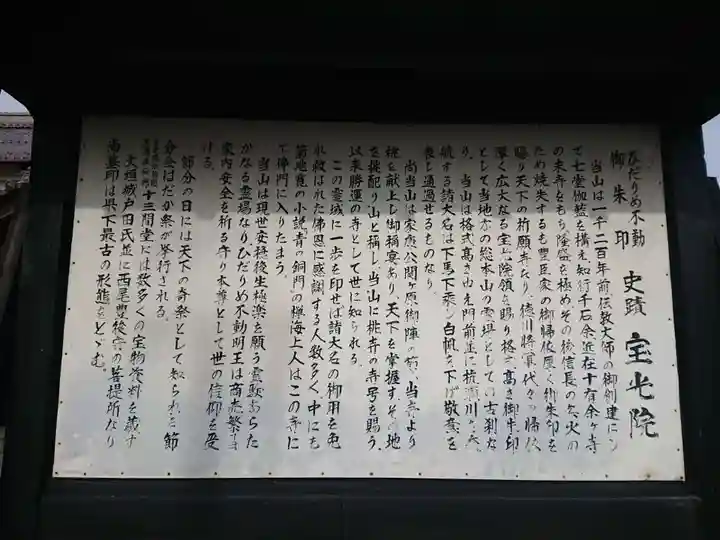 ひだりめ不動
御朱印 史蹟 宝光院
当山は一千二百年前伝教大師の御創建にし
て七堂伽藍を構え知行千石余近在十有余ヶ寺
の末寺をもち隆盛を極めその後信長の兵火の
ため焼失するも豊臣家の御帰依厚く御朱印を
賜り天下の祈願寺なり、徳川将軍代々の帰依
厚く広大なる宝光院領を賜り格式高き御朱印
として当地方の総本山の霊場としての古刹な
り。当山は格式高きゆえ門前並に杭瀬川を通
航する諸大名は下馬下乗し白帆を下げ敬意を
表し通過せるものなり。
尚当山は家康公関ヶ原御陣の節、当寺より
柿を献上し御称宴あり天下を掌握す、その地
を桃配り山と称し当山に桃寺の寺号を賜う、
以来勝運の寺として世に知られる。
この霊域に一歩を印せば諸大名の御用を免
れ救はれた佛恩に感謝する人数多く中にも
菊池寛の小説青の洞門の禅海上人はこの寺に
て佛門に入りたまう。
当山は現世安穏後生極楽を願う霊験あらた
かなる霊場なりひだりめ不動明王は商売繁昌
家内安全を祈る守り本尊として世の信仰を受
ける。
節分の日には天下の奇祭として知られる節
分会はだか祭が挙行される。
十三間堂には数多くの宝物資料を蔵す
大垣城戸田氏並に西尾豊後守の菩提所なり
尚墓印は県下最古の形態をとゞむ。